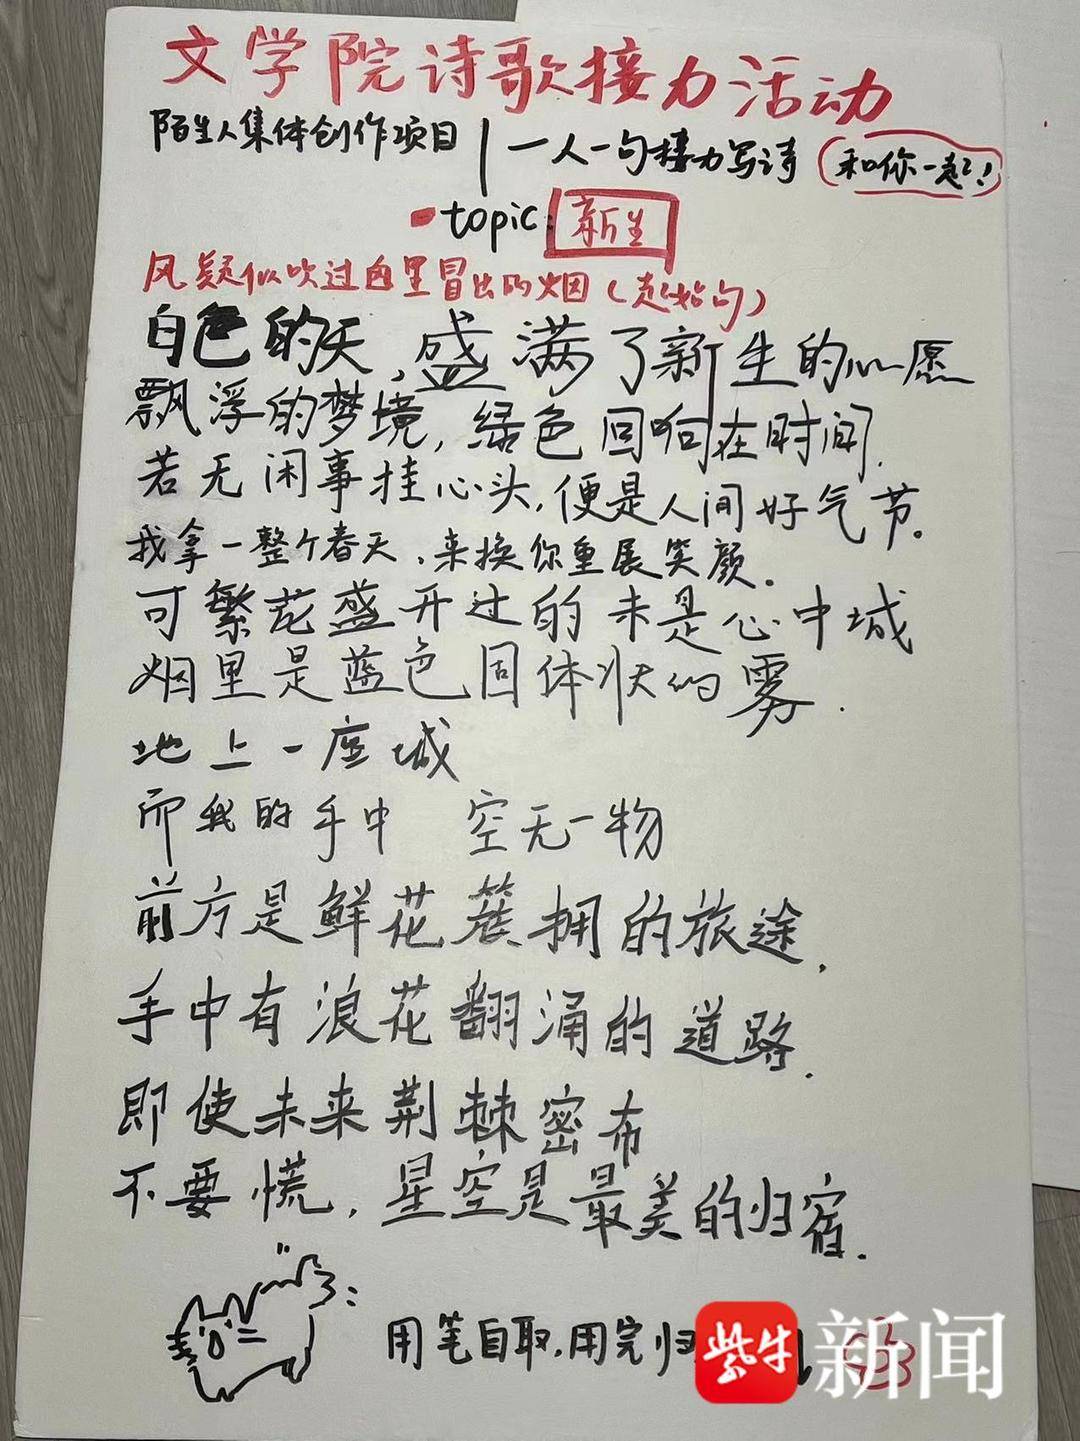 文学院诗歌接力活动
陌生人集体创作项目 | 一人一句接力写诗 (和你一起!)
topic: 新生
风疑似吹过白里冒出的烟(起始句)
白色的天,盛满了新生的心愿
飘浮的梦境,绿色回响在时间.
若无闲事挂心头,便是人间好气节。
我拿一整个春天,来换你重展笑颜。
可繁花盛开过的未是心中城
烟里是蓝色固体状的雾.
地上一座城
而我的手中 空无一物
前方是鲜花簇拥的旅途.
手中有浪花翻涌的道路.
即使未来荆棘密布
不要慌,星空是最美的归宿.
用笔自取.用完归
紫牛新闻